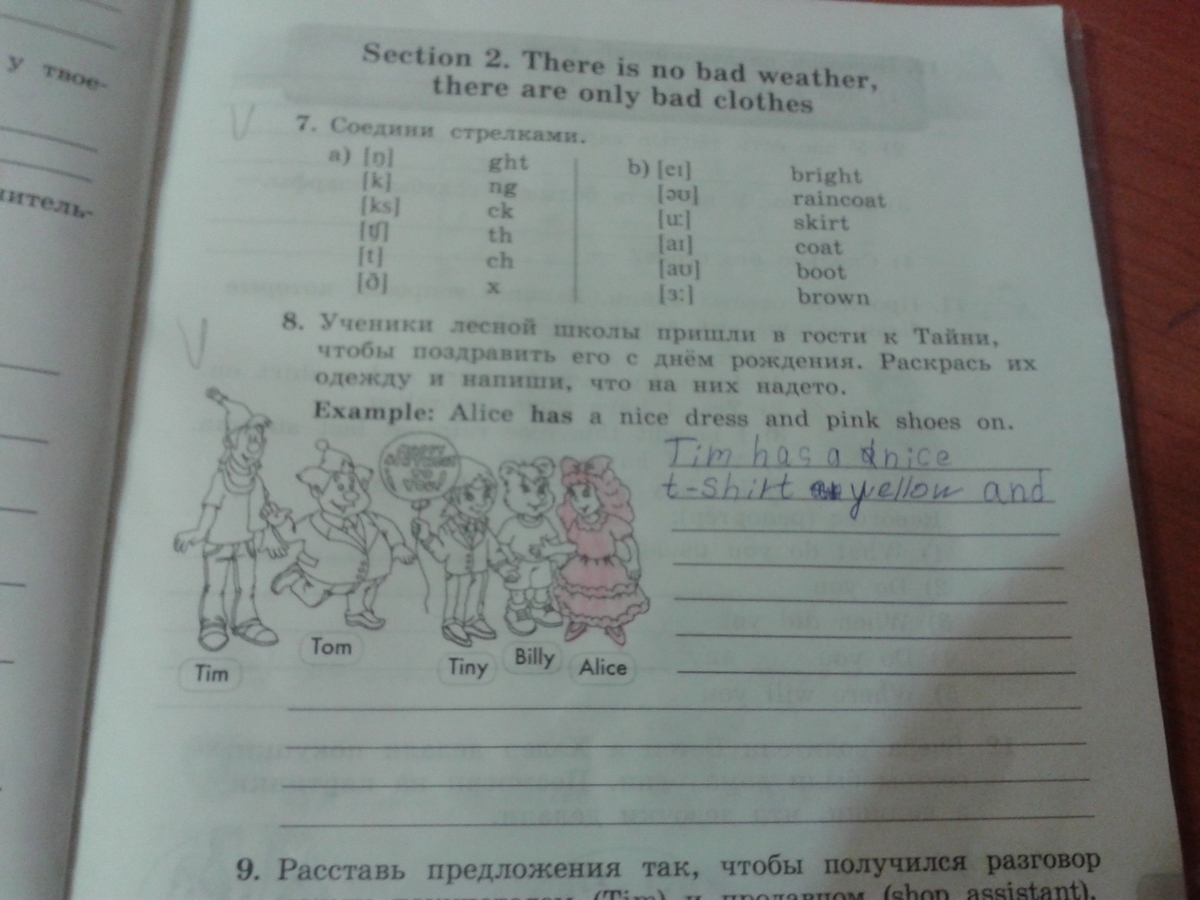 у твое-
нитель-
Section 2. There is no bad weather,
there are only bad clothes
7. Соедини стрелками.
a) [ŋ] ght
[k] ng
[ks] ck
[tʃ] th
[t] ch
[ð] x
b) [eɪ] bright
[əʊ] raincoat
[u:] skirt
[aɪ] coat
[aʊ] boot
[ɜ:] brown
8. Ученики лесной школы пришли в гости к Тайни,
чтобы поздравить его с днём рождения. Раскрась их
одежду и напиши, что на них надето.
Example: Alice has a nice dress and pink shoes on.
Tim has a nice
t-shirt yellow and
Tim
Tom
Tiny
Billy
Alice
9. Расставь предложения так, чтобы получился разговор
(Tim) и продавцом (shop assistant).